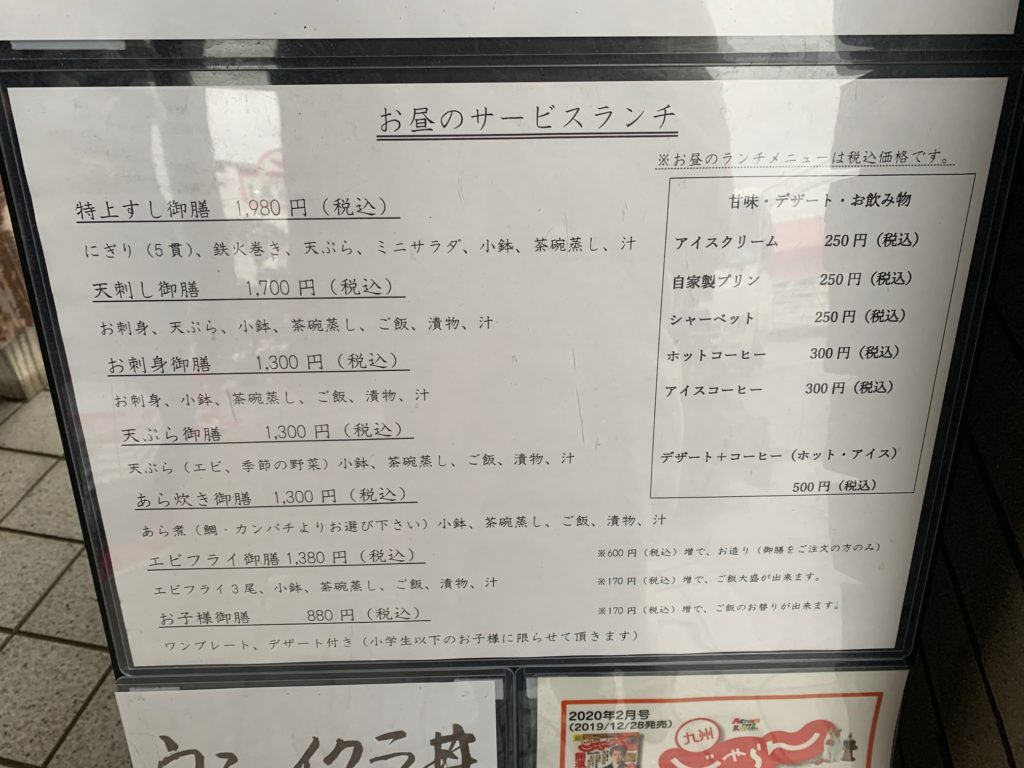 お昼のサービスランチ
※お昼のランチメニューは税込価格です。
特上すし御膳 1,980円（税込）
にぎり（5貫）、鉄火巻き、天ぷら、ミニサラダ、小鉢、茶碗蒸し、汁
天刺し御膳 1,700円（税込）
お刺身、天ぷら、小鉢、茶碗蒸し、ご飯、漬物、汁
お刺身御膳 1,300円（税込）
お刺身、小鉢、茶碗蒸し、ご飯、漬物、汁
天ぷら御膳 1,300円（税込）
天ぷら（エビ、季節の野菜）小鉢、茶碗蒸し、ご飯、漬物、汁
あら炊き御膳 1,300円（税込）
あら煮（鯛・カンパチよりお選び下さい）小鉢、茶碗蒸し、ご飯、漬物、汁
エビフライ御膳 1,380円（税込）
エビフライ3尾、小鉢、茶碗蒸し、ご飯、漬物、汁
お子様御膳 880円（税込）
ワンプレート、デザート付き（小学生以下のお子様に限らせて頂きます）
甘味・デザート・お飲み物
アイスクリーム 250円（税込）
自家製プリン 250円（税込）
シャーベット 250円（税込）
ホットコーヒー 300円（税込）
アイスコーヒー 300円（税込）
デザート＋コーヒー（ホット・アイス）
500円（税込）
※600円（税込）増で、お造り（御膳をご注文の方のみ）
※170円（税込）増で、ご飯大盛が出来ます。
※170円（税込）増で、ご飯のお替りが出来ます。
ウニ イクラ丼
2020年2月号
（2019/12/28発売）
九州
じゃらん